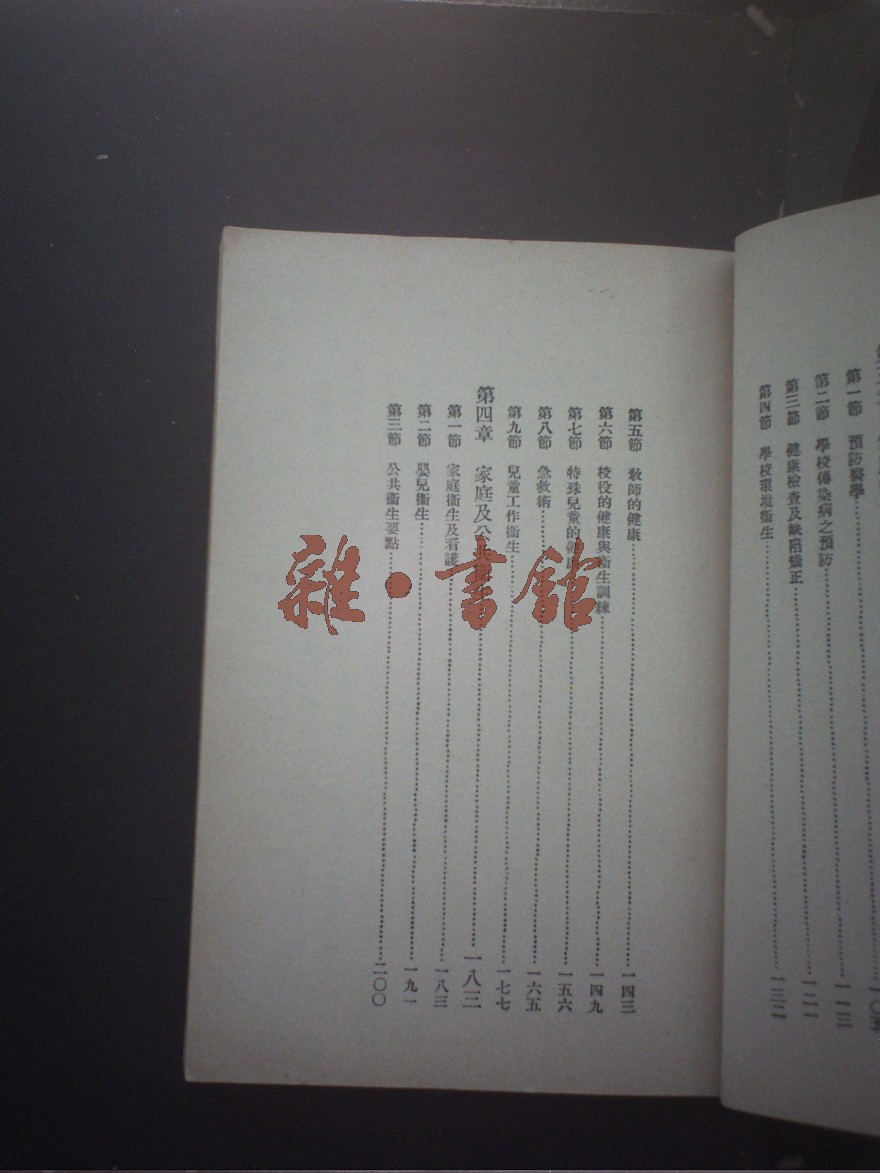 第一節　預防醫學……一一三
第二節　學校傳染病之預防……一一三
第三節　健康檢查及缺陷矯正……一二一
第四節　學校環境衞生……一三二
第五節　敎師的健康……一四三
第六節　校役的健康與衞生訓練……一四九
第七節　特殊兒童的健康……一五六
第八節　急救術……一六五
第九節　兒童工作衞生……一七七
第四章　家庭及公共衞生……一八三
第一節　家庭衞生及看護……一八三
第二節　嬰兒衞生……一九一
第三節　公共衞生要點……二〇〇
雜·書館